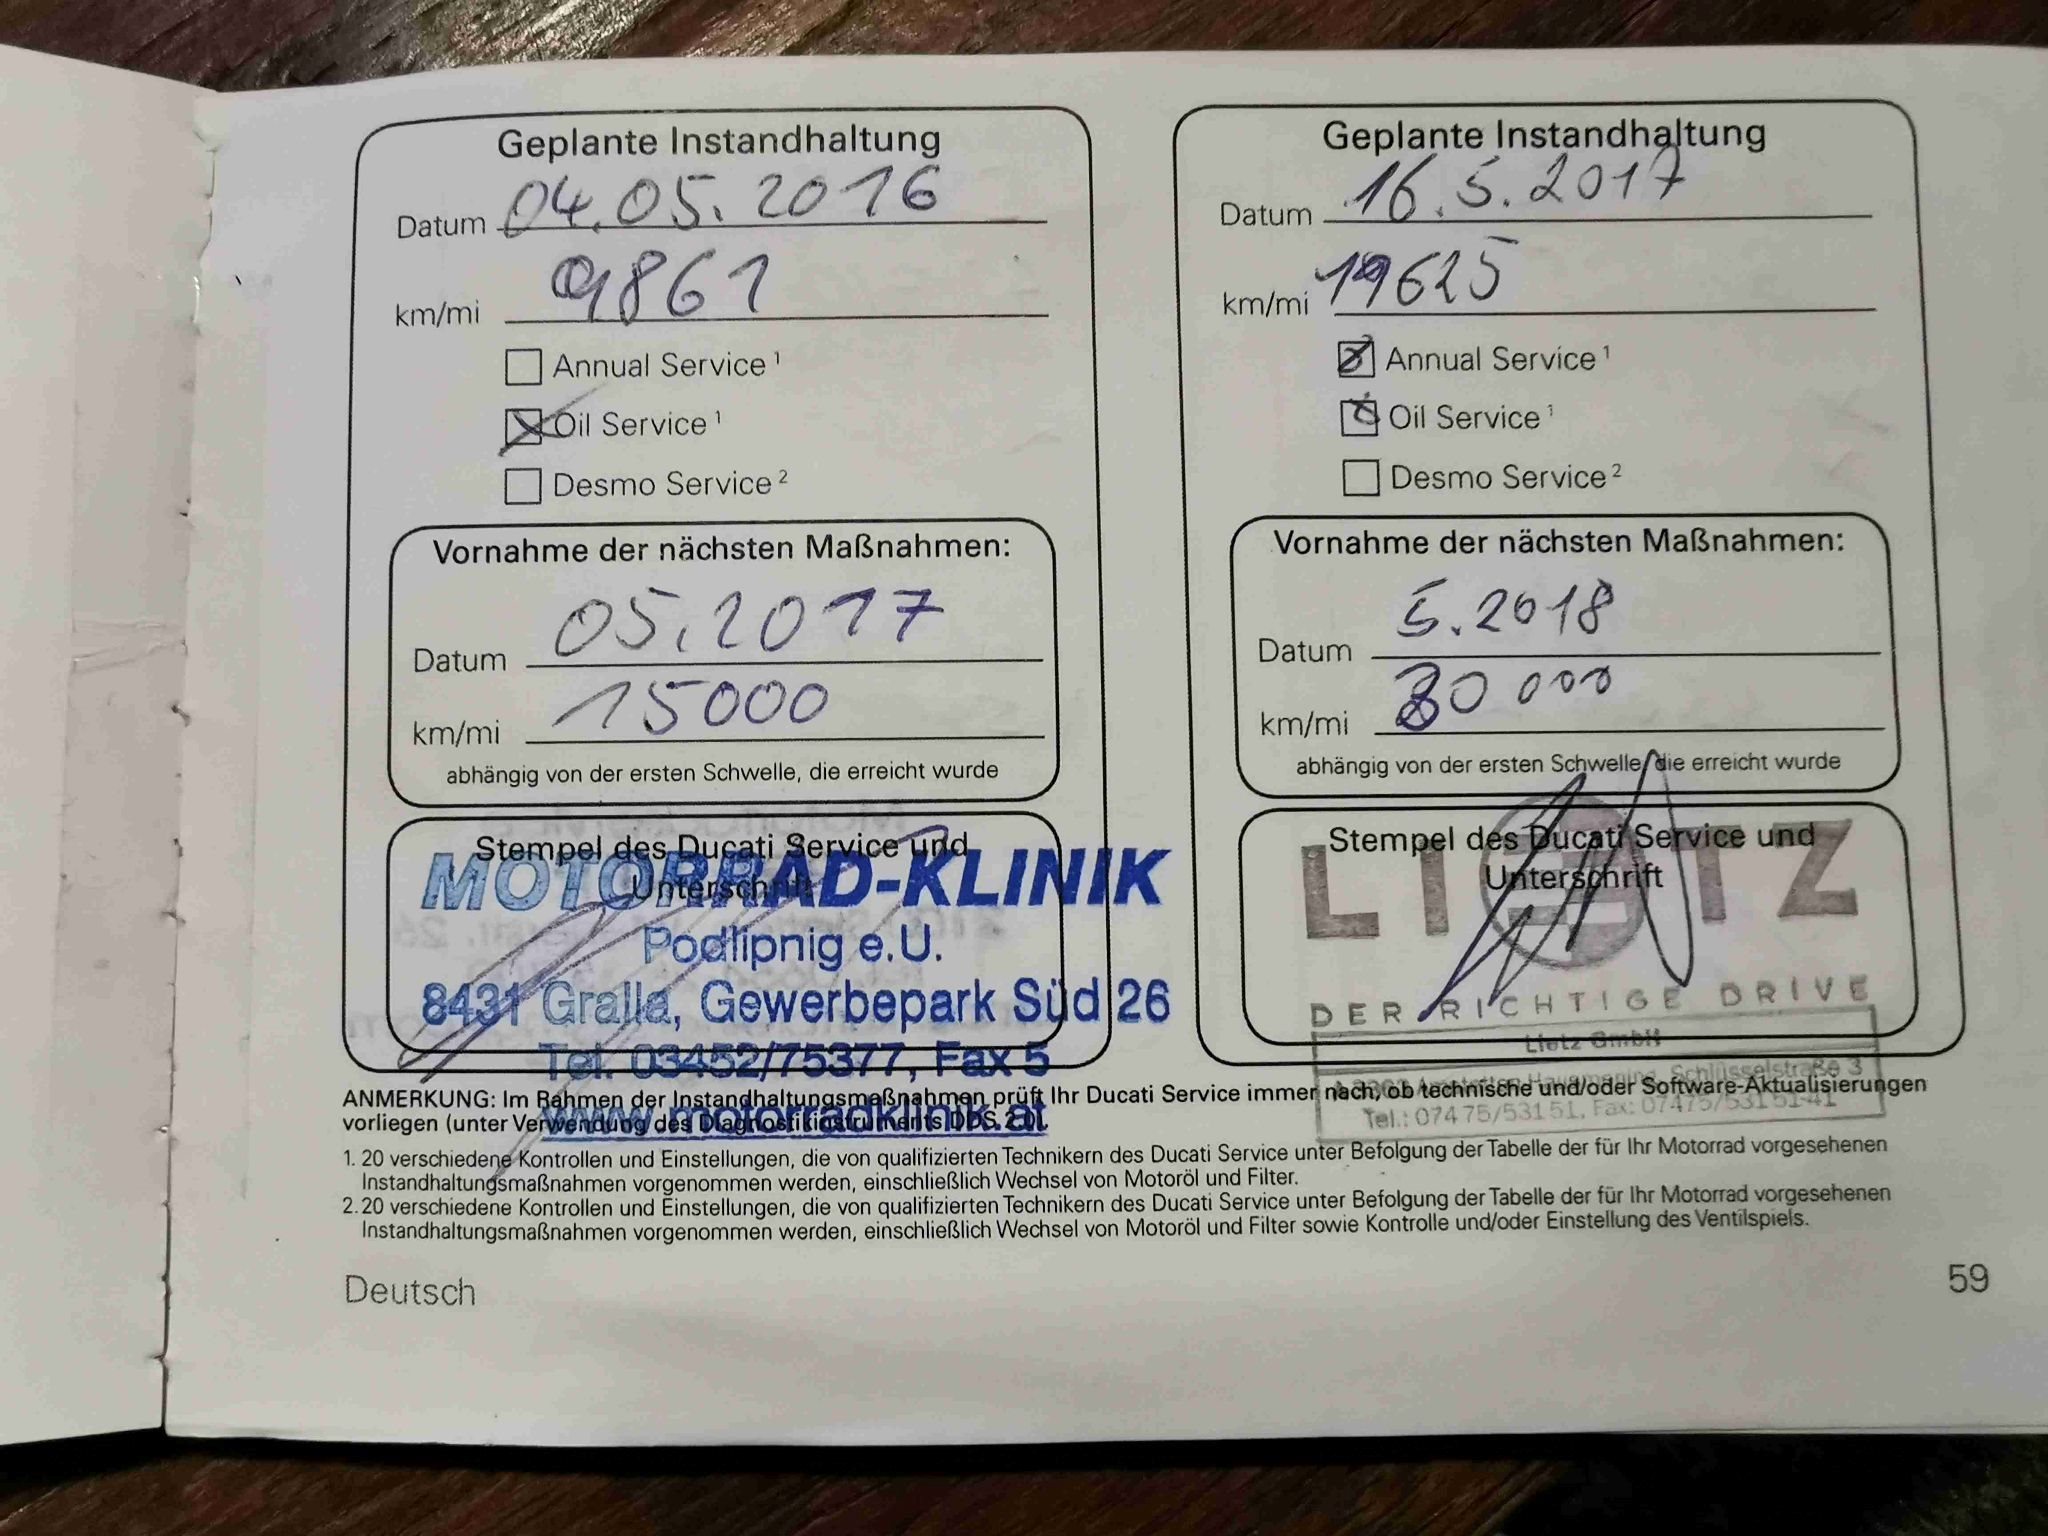 Geplante Instandhaltung
Datum 04.05.2016
km/mi 9861
Annual Service ¹
Oil Service ¹
Desmo Service ²
Vornahme der nächsten Maßnahmen:
Datum 05.2017
km/mi 15000
abhängig von der ersten Schwelle, die erreicht wurde
Stempel des Ducati Service und
Unterschrift
MOTORRAD-KLINIK
Podlipnig e.U.
8431 Gralla, Gewerbepark Süd 26
Tel. 03452/75377, Fax 5
www.motorradklinik.at
Geplante Instandhaltung
Datum 16.5.2017
km/mi 19625
Annual Service ¹
Oil Service ¹
Desmo Service ²
Vornahme der nächsten Maßnahmen:
Datum 5.2018
km/mi 30 000
abhängig von der ersten Schwelle, die erreicht wurde
Stempel des Ducati Service und
Unterschrift
LIETZ
DER RICHTIGE DRIVE
Lietz GmbH
Hausmening, Schlüsselstraße 3
Tel.: 07475/53151, Fax: 07475/53151-41
ANMERKUNG: Im Rahmen der Instandhaltungsmaßnahmen prüft Ihr Ducati Service immer nach, ob technische und/oder Software-Aktualisierungen
vorliegen (unter Verwendung des Diagnostikinstruments DDS 2.0).
1. 20 verschiedene Kontrollen und Einstellungen, die von qualifizierten Technikern des Ducati Service unter Befolgung der Tabelle der für Ihr Motorrad vorgesehenen
Instandhaltungsmaßnahmen vorgenommen werden, einschließlich Wechsel von Motoröl und Filter.
2. 20 verschiedene Kontrollen und Einstellungen, die von qualifizierten Technikern des Ducati Service unter Befolgung der Tabelle der für Ihr Motorrad vorgesehenen
Instandhaltungsmaßnahmen vorgenommen werden, einschließlich Wechsel von Motoröl und Filter sowie Kontrolle und/oder Einstellung des Ventilspiels.
Deutsch
59